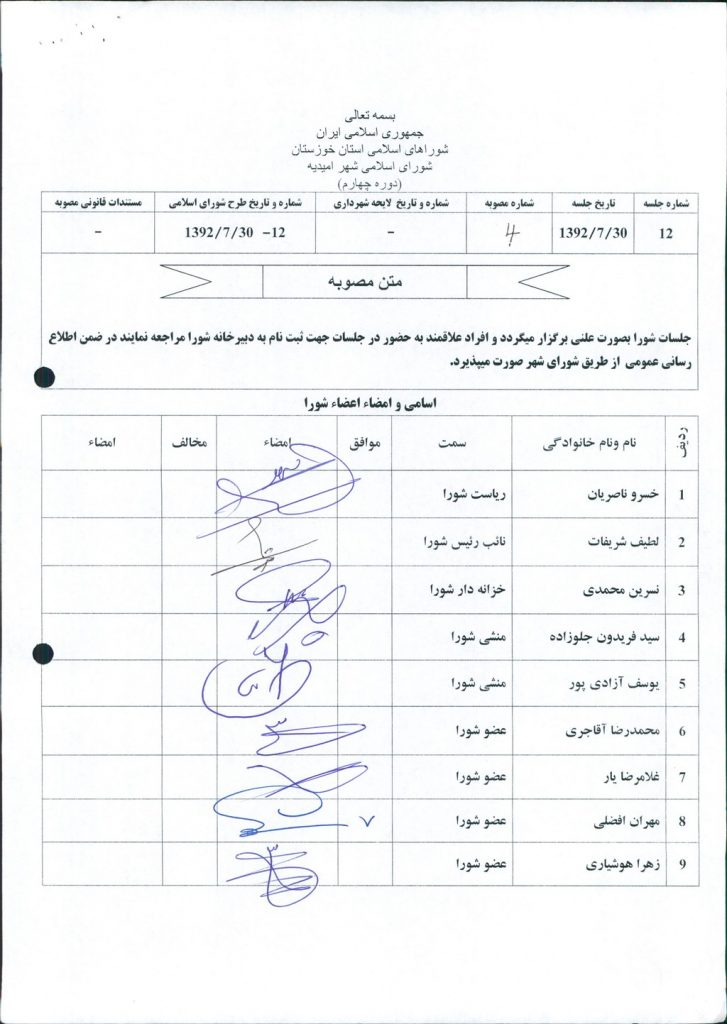 بسمه تعالی
جمهوری اسلامی ایران
شوراهای اسلامی استان خوزستان
شورای اسلامی شهر امیدیه
(دوره چهارم)
شماره جلسه تاریخ جلسه شماره مصوبه شماره و تاریخ لایحه شهرداری شماره و تاریخ طرح شورای اسلامی مستندات قانونی مصوبه
12 1392/7/30 4 - 12- 1392/7/30 -
متن مصوبه
جلسات شورا بصورت علنی برگزار میگردد و افراد علاقمند به حضور در جلسات جهت ثبت نام به دبیرخانه شورا مراجعه نمایند در ضمن اطلاع
رسانی عمومی از طریق شورای شهر صورت میپذیرد.
اسامی و امضاء اعضاء شورا
ردیف نام ونام خانوادگی سمت موافق امضاء مخالف امضاء
1 خسرو ناصریان ریاست شورا
2 لطیف شریفات نائب رئیس شورا
3 نسرین محمدی خزانه دار شورا
4 سید فریدون جلوزاده منشی شورا
5 یوسف آزادی پور منشی شورا
6 محمدرضا آقاجری عضو شورا
7 غلامرضا یار عضو شورا
8 مهران افضلی عضو شورا
9 زهرا هوشیاری عضو شورا